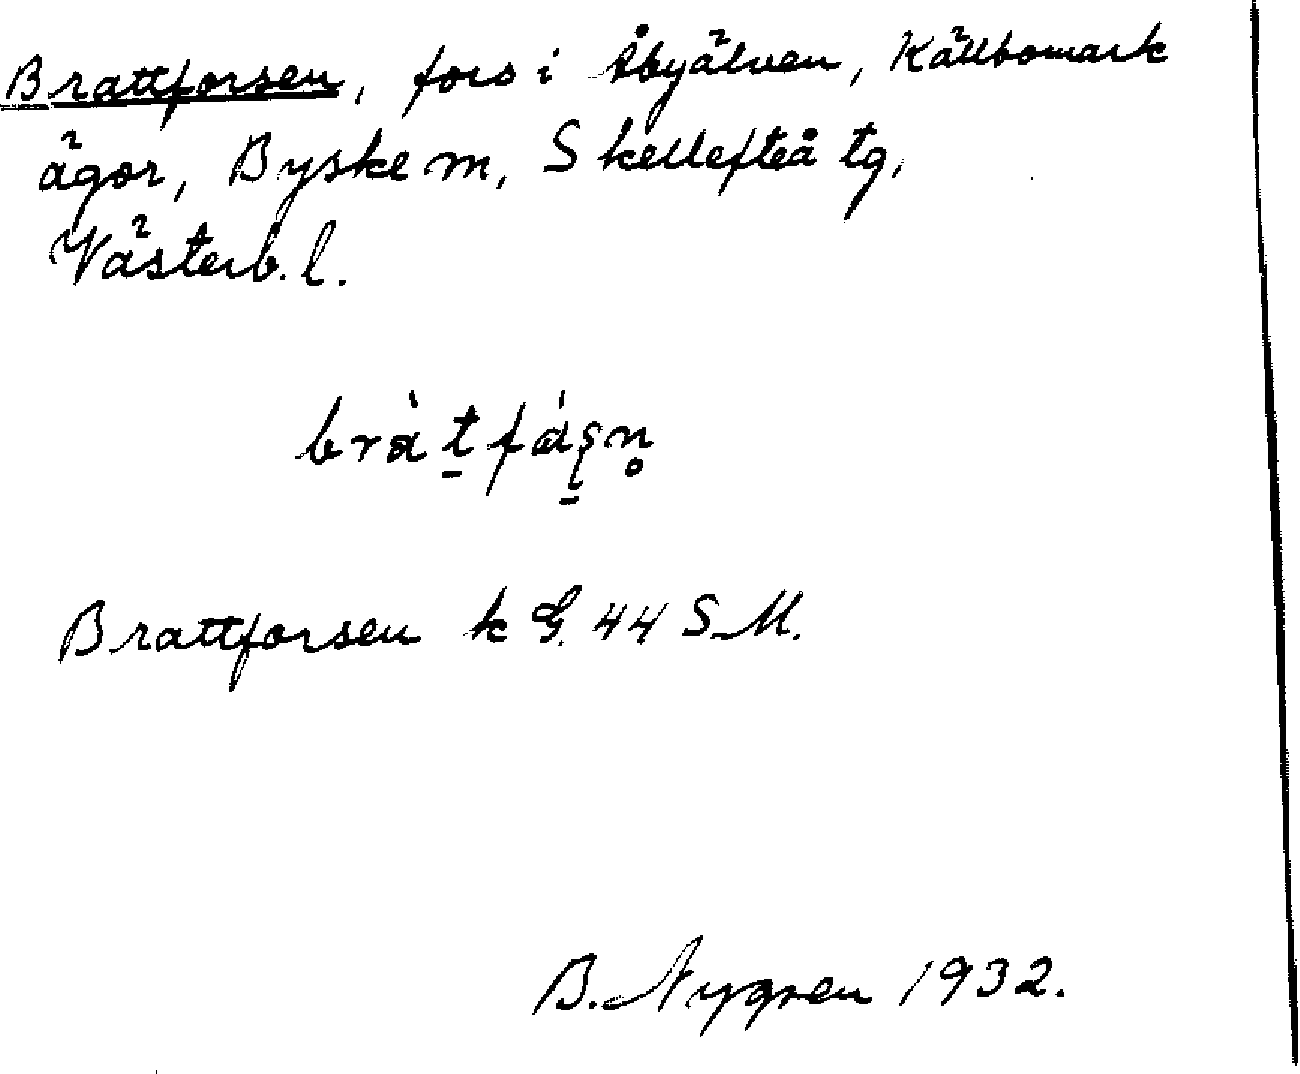 Brattforsen, fors i Åbyälven, Källbomark
ägor, Byske m, Skellefteå tg,
Västerb. l.
bràt̲fáʂ̲n̥
Brattforsen k G. 44 S M.
B. Nygren 1932.